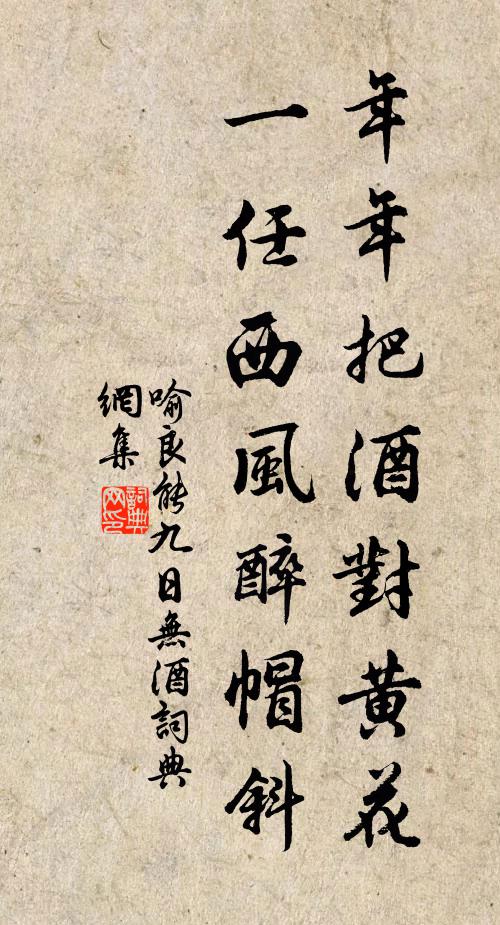 年年把酒對黄花
一任西風醉帽斜
喻良能九日無酒詞典
網集
詞典
网印